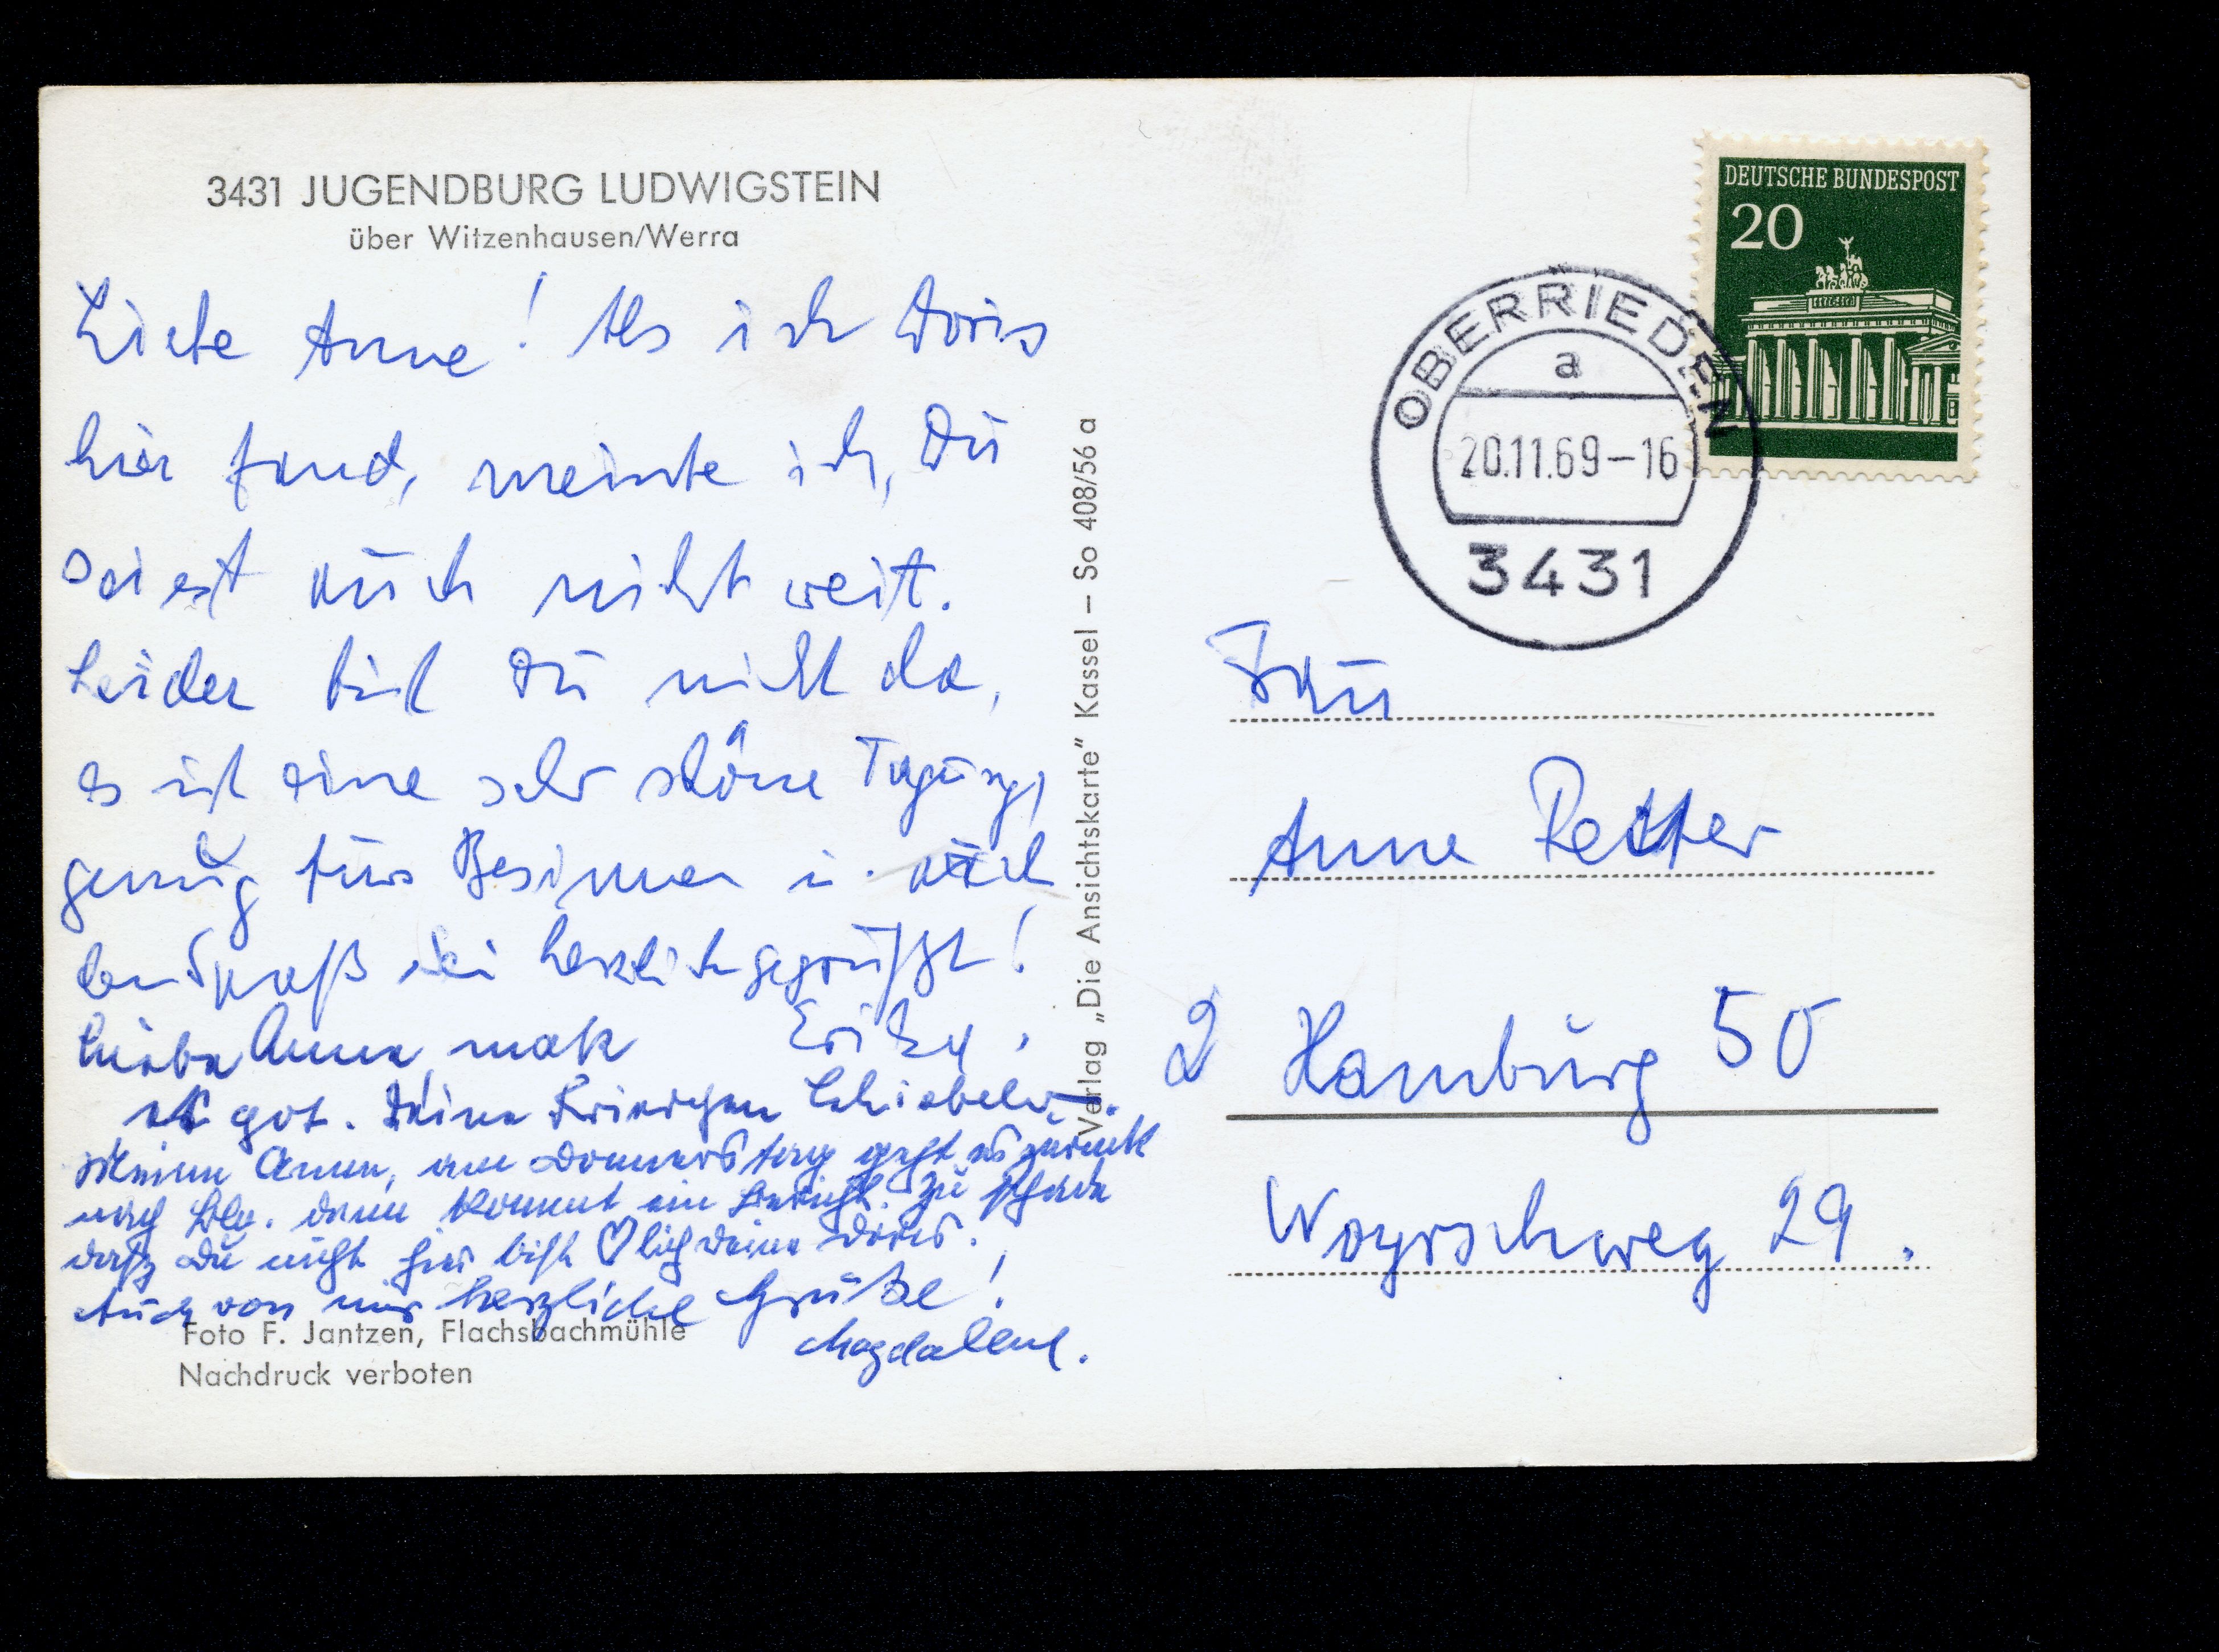 3431 JUGENDBURG LUDWIGSTEIN
über Witzenhausen/Werra
Liebe Anne! Als ich Doris
hier fand, meinte ich, Du
seiest auch nicht weit.
Leider bist Du nicht da,
es ist eine sehr schöne Tagung,
genug fürs Besinnen u. auch
den Spaß sei herzlich gegrüßt!
Erika.
Liebe Anne, mak
et got. Deine
Meine Anne, am Donnerstag geht es zurück
nach dann kommt ein Bericht. Zu schade
daß Du nicht hier bist ♡lich Deine Doris.
Auch von mir herzliche Grüße!
Magdalene.
Foto F. Jantzen, Flachsbachmühle
Nachdruck verboten
Verlag „Die Ansichtskarte" Kassel – So 408/56 a
DEUTSCHE BUNDESPOST
20
OBERRIEDEN
a
20.11.69-16
3431
Frau
Anne Retter
2 Hamburg 50
Woyrschweg 29.